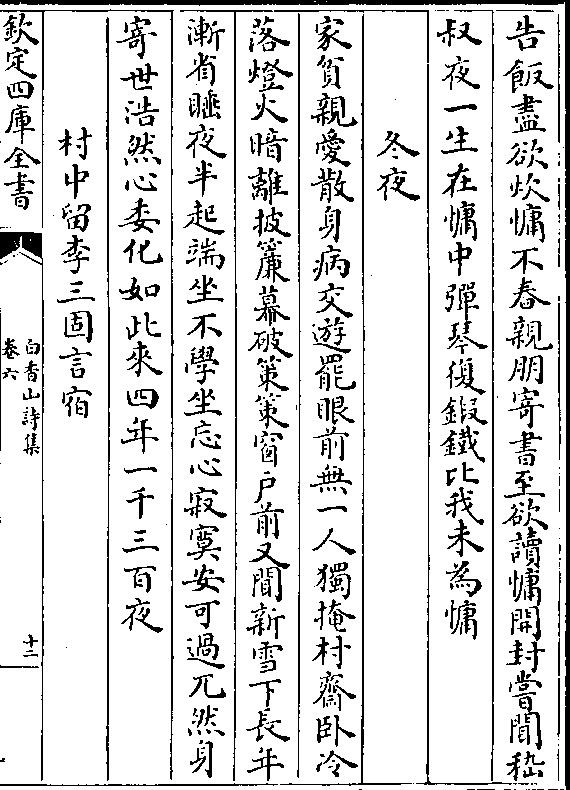 告飯盡欲炊慵不舂親朋寄書至欲讀慵開封嘗聞嵇
叔夜一生在慵中彈琴復鍛鐵比我未為慵
冬夜
家貧親愛散身病交遊罷眼前無一人獨掩村齋臥冷
落燈火暗離披簾幕破策策窗戶前又聞新雪下長年
漸省睡夜半起端坐不學坐忘心寂寞安可過兀然身
寄世浩然心委化如此來四年一千三百夜
村中留李三固言宿
欽定四庫全書
白香山詩集
卷六
十二